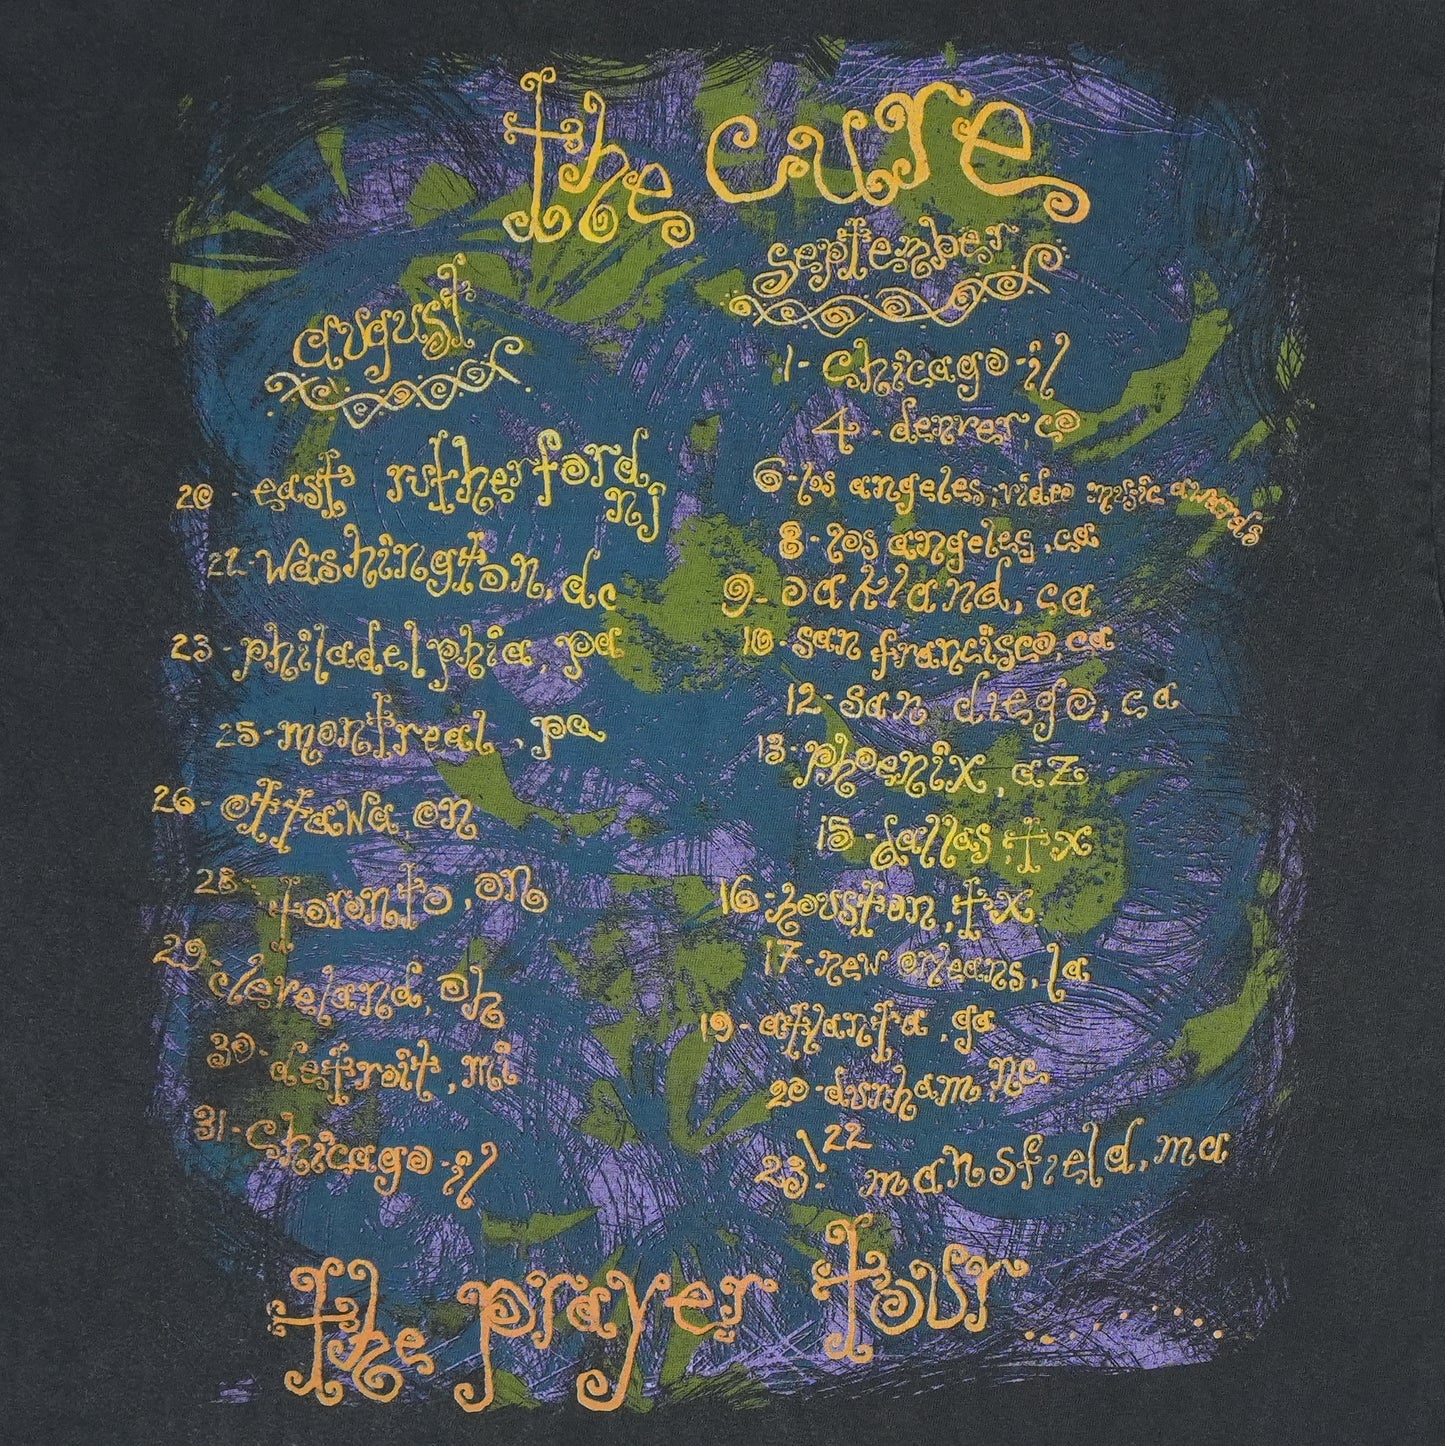 the cure
august
20 - east rutherford, nj
22 - washington, dc
23 - philadelphia, pa
25 - montreal, pa
26 - ottawa, on
28 - toronto, on
29 - cleveland, oh
30 - detroit, mi
31 - chicago - il
september
1 - chicago - il
4 - denver, co
6 - los angeles, video music awards
8 - los angeles, ca
9 - oakland, ca
10 - san francisco, ca
12 - san diego, ca
13 - phoenix, az
15 - dallas, tx
16 - houston, tx
17 - new orleans, la
19 - atlanta, ga
20 - durham, nc
22
23! mansfield, ma
the prayer tour..........